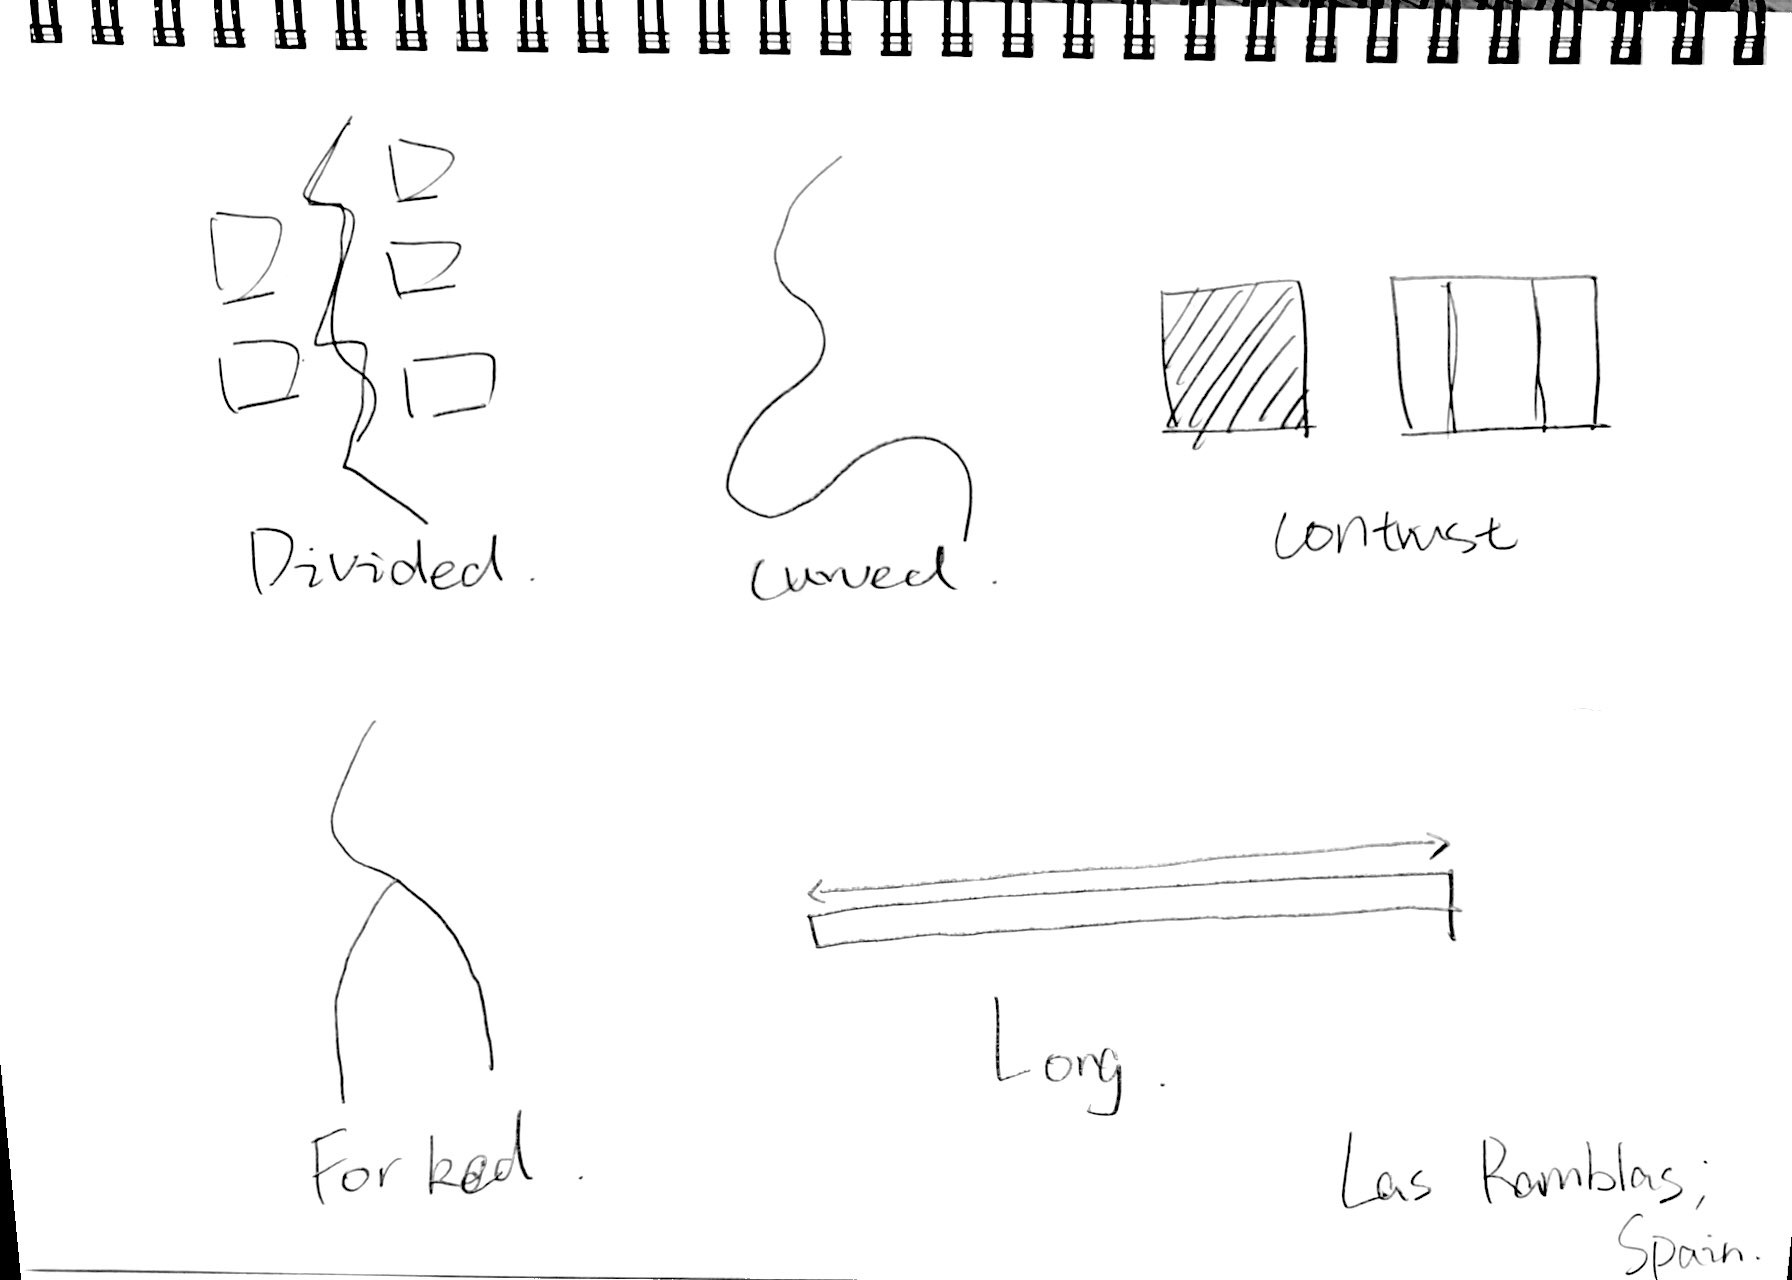 Divided.
curved.
contrust
Forked.
Long.
Las Ramblas;
Spain.